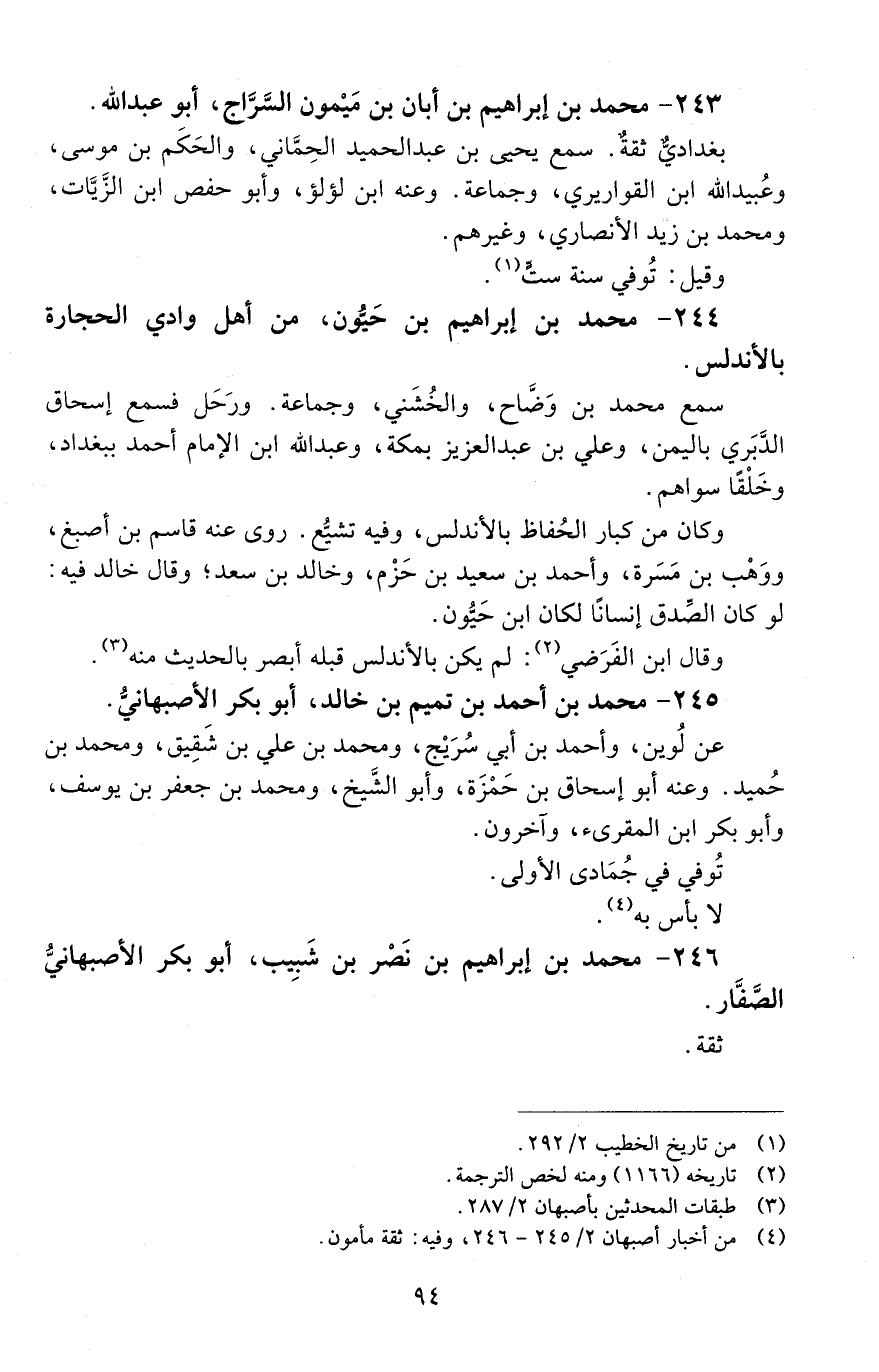 ٢٤٣- محمد بن إبراهيم بن أبان بن مَيْمون السَّرَّاج، أبو عبدالله.
بغداديٌّ ثقةٌ. سمع يحيى بن عبدالحميد الحِمَّاني، والحَكَم بن موسى،
وعُبيدالله ابن القواريري، وجماعة. وعنه ابن لؤلؤ، وأبو حفص ابن الزَّيَّات،
ومحمد بن زيد الأنصاري، وغيرهم.
وقيل: تُوفي سنة ستٍّ(١).
٢٤٤- محمد بن إبراهيم بن حَيُّون، من أهل وادي الحجارة
بالأندلس.
سمع محمد بن وَضَّاح، والخُشَني، وجماعة. ورَحَل فسمع إسحاق
الدَّبَري باليمن، وعلي بن عبدالعزيز بمكة، وعبدالله ابن الإمام أحمد ببغداد،
وخَلْقًا سواهم.
وكان من كبار الحُفاظ بالأندلس، وفيه تشيُّع. روى عنه قاسم بن أصبغ،
ووَهْب بن مَسَرة، وأحمد بن سعيد بن حَزْم، وخالد بن سعد؛ وقال خالد فيه:
لو كان الصِّدق إنسانًا لكان ابن حَيُّون.
وقال ابن الفَرَضي(٢): لم يكن بالأندلس قبله أبصر بالحديث منه(٣).
٢٤٥- محمد بن أحمد بن تميم بن خالد، أبو بكر الأصبهانيُّ.
عن لُوين، وأحمد بن أبي سُرَيْج، ومحمد بن علي بن شَقِيق، ومحمد بن
حُميد. وعنه أبو إسحاق بن حَمْزَة، وأبو الشَّيخ، ومحمد بن جعفر بن يوسف،
وأبو بكر ابن المقرىء، وآخرون.
تُوفي في جُمَادى الأولى.
لا بأس به(٤).
٢٤٦- محمد بن إبراهيم بن نَصْر بن شَبِيب، أبو بكر الأصبهانيُّ
الصَّفَّار.
ثقة.
(١) من تاريخ الخطيب ٢/ ٢٩٢.
(٢) تاريخه (١١٦٦) ومنه لخص الترجمة.
(٣) طبقات المحدثين بأصبهان ٢/ ٢٨٧.
(٤) من أخبار أصبهان ٢/ ٢٤٥ - ٢٤٦، وفيه: ثقة مأمون.
٩٤